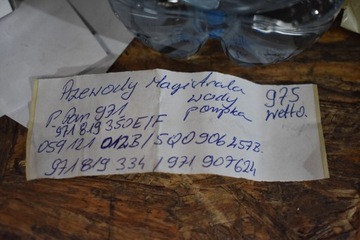 Przewody Magistrala
wody
pompka
975
netto.
P. Pan 971
971 819 350E/F
059 121 012B / 5Q0 906 257B.
971 819 334 / 971 907 624